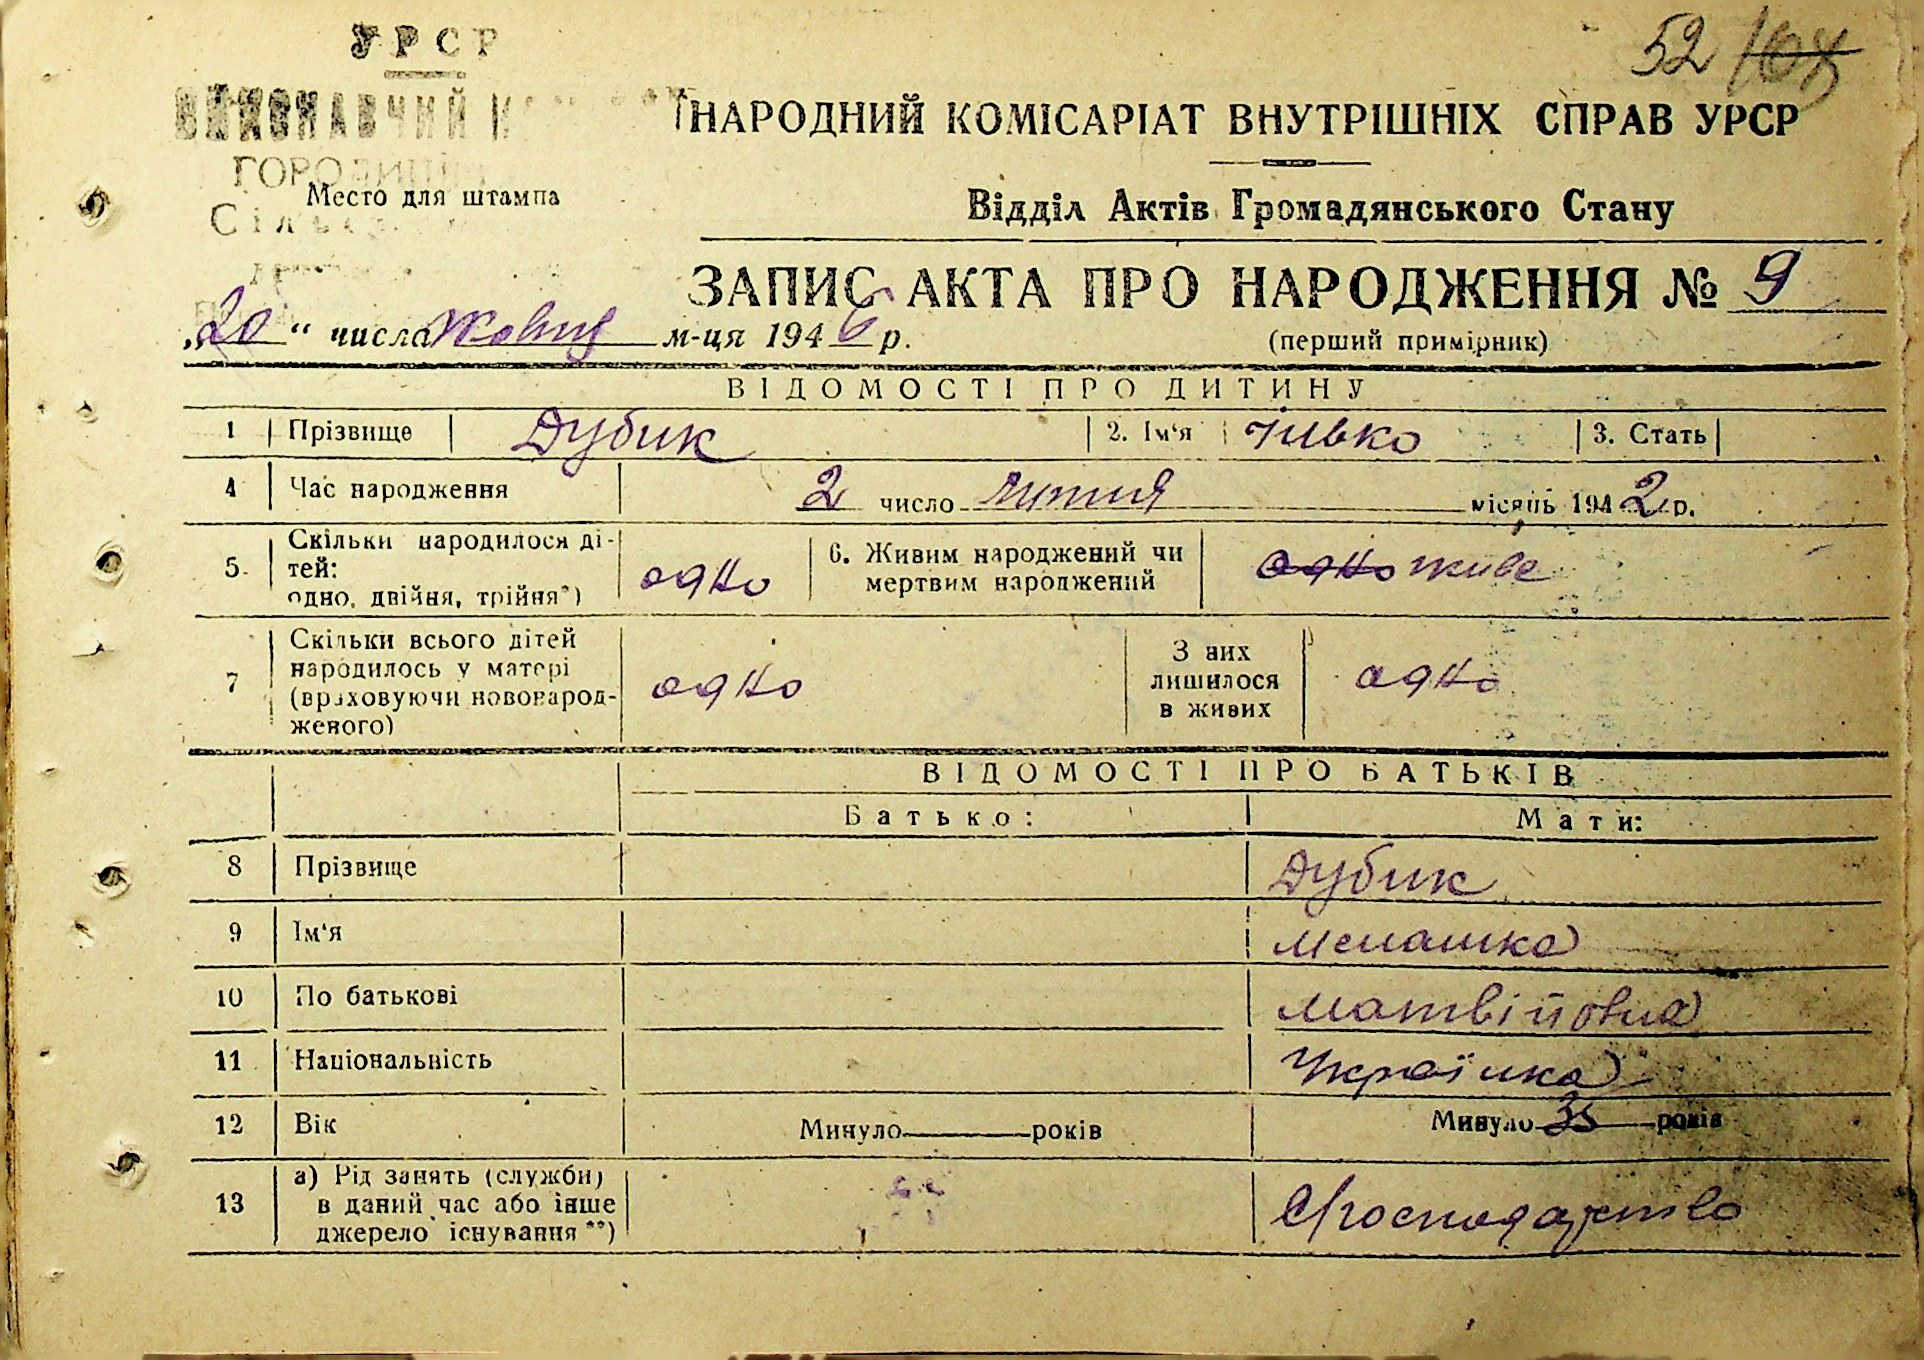 УРСР
52
ВИКОНАВЧИЙ
НАРОДНИЙ КОМІСАРІАТ ВНУТРІШНІХ СПРАВ УРСР
Место для штампа
Відділ Актів Громадянського Стану
ЗАПИС АКТА ПРО НАРОДЖЕННЯ № 9
„20“ числа м-ця 1946 р.
(перший примірник)
ВІДОМОСТІ ПРО ДИТИНУ
1 Прізвище Дубик 2. Ім‘я 3. Стать
4 Час народження 2 число липня місяць 1942 р.
5. Скільки народилося ді-
тей:
одно, двійня, трійня*) одно
6. Живим народжений чи
мертвим народжений одно живе
7 Скільки всього дітей
народилось у матері
(враховуючи новонарод-
женого) одно
З них
лишилося
в живих одно
ВІДОМОСТІ ПРО БАТЬКІВ
Батько: Мати:
8 Прізвище Дубик
9 Ім‘я Мелашка
10 По батькові Матвіївна
11 Національність Українка
12 Вік Минуло років Минуло 35 років
13 а) Рід занять (служби)
в даний час або інше
джерело існування **) Господарство